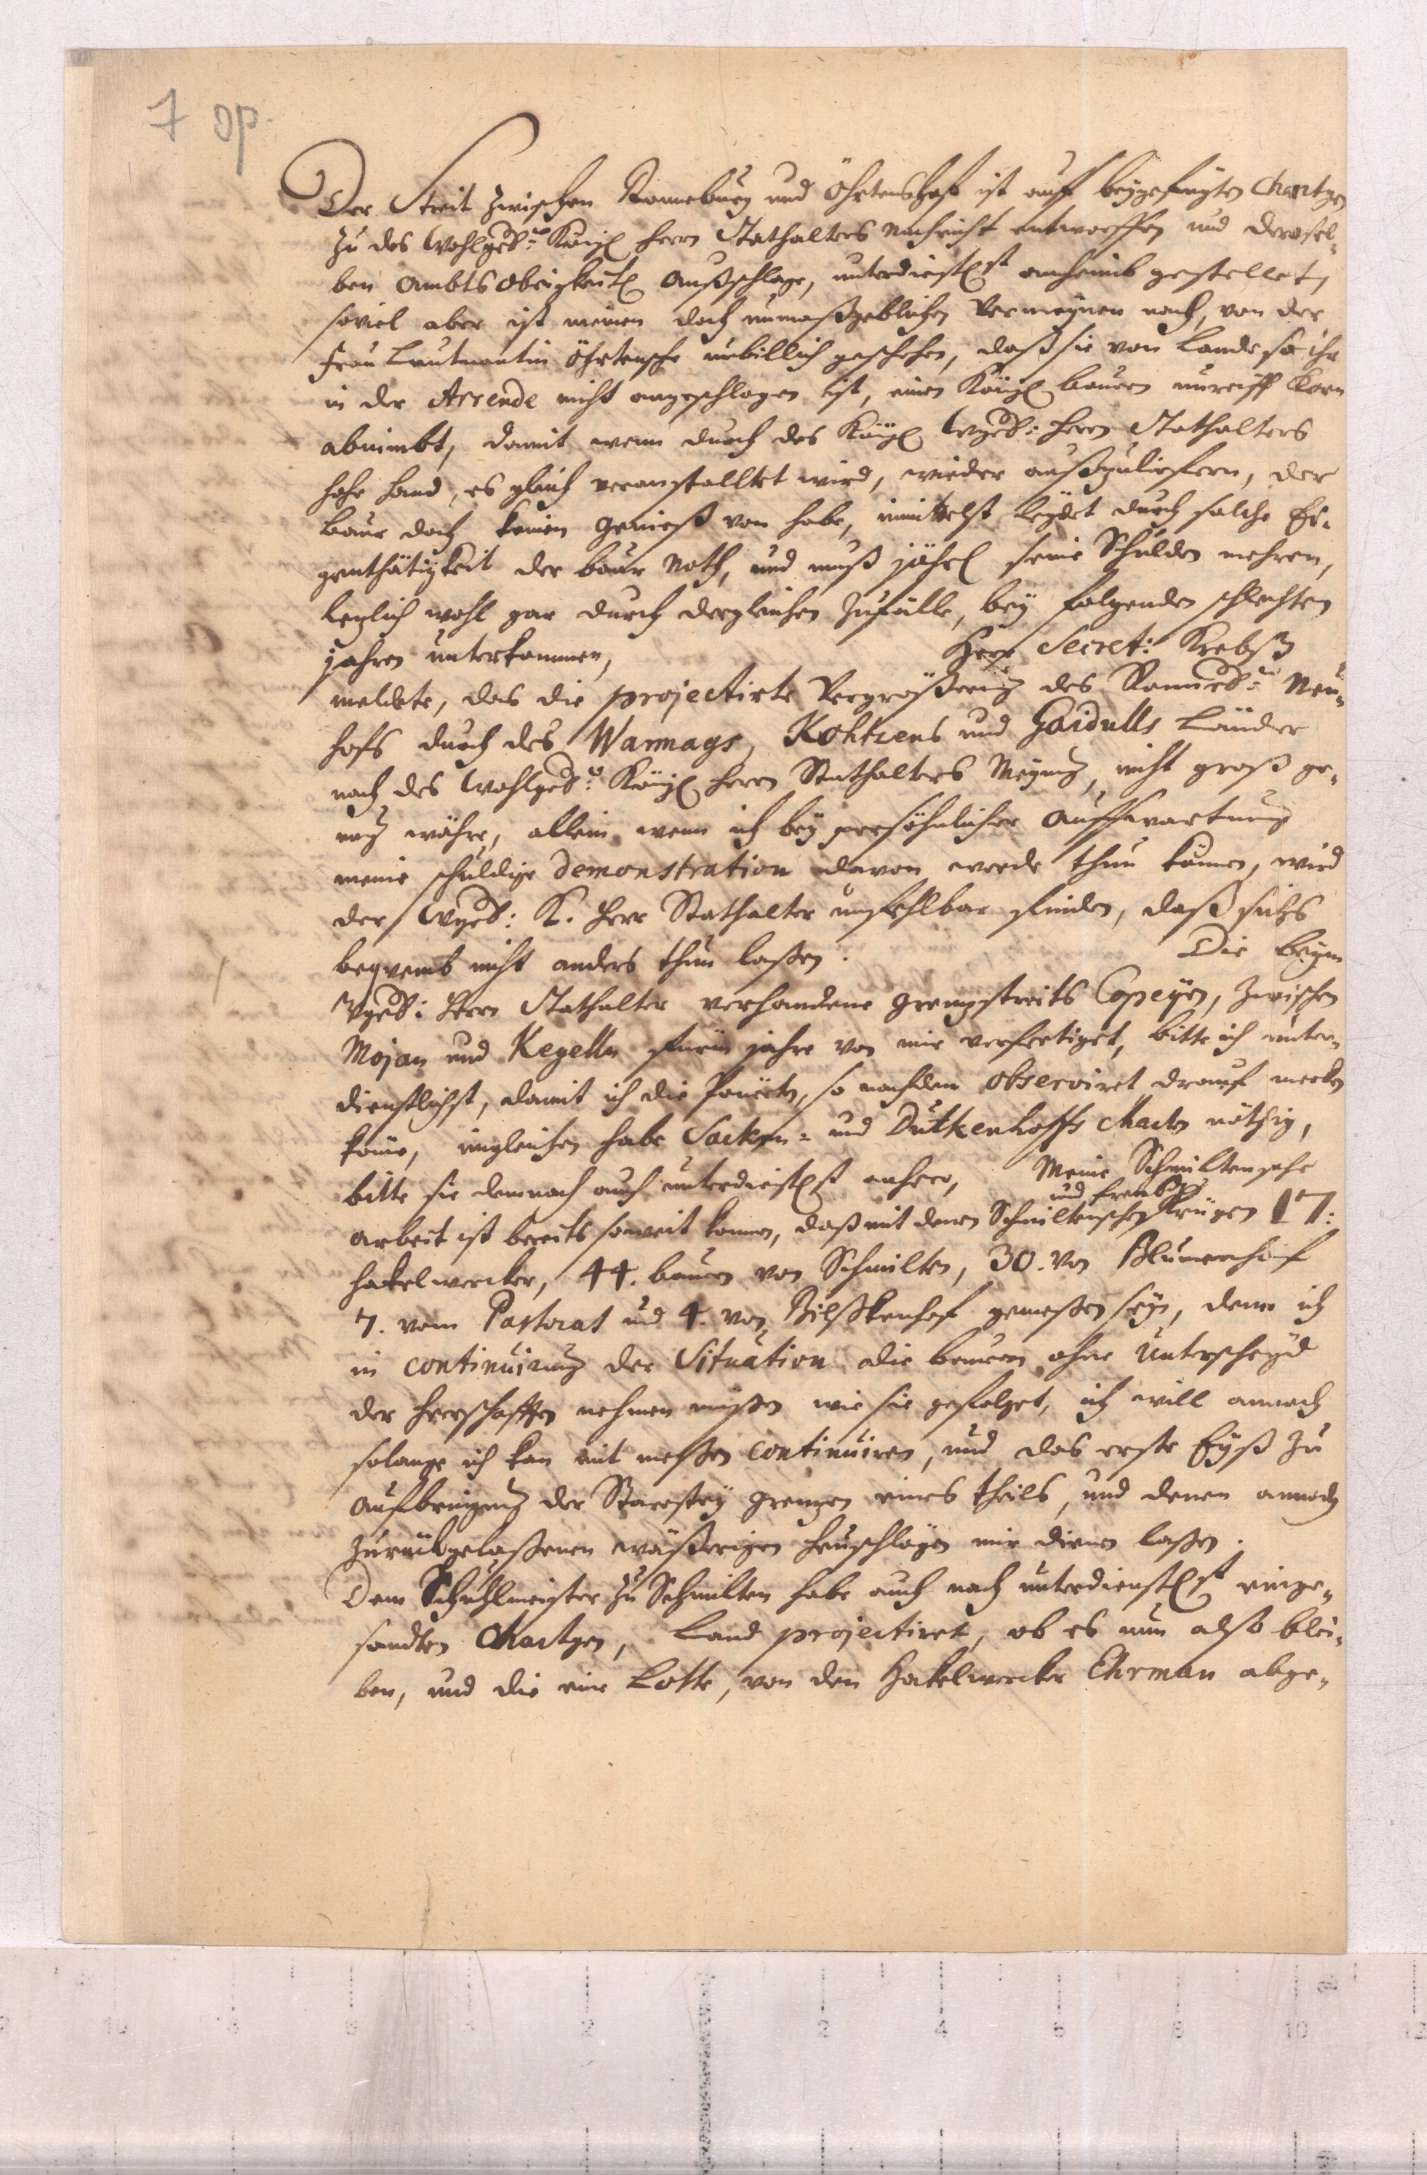 7 op.
Der Streit zwischen Ronneburg und Öhrtenshoff ist auff beygefügten Chartgen
zu des Wohlgeb: Königl Herrn Stathalters Nachricht entworffen und derosel-
ben Ambts Obrigkeitl Außschlage, unterdienstl. anheimb gestellet,
soviel aber ist meinen doch unmaßgeblichen Vermeynen nach, von der
Frau Leutnantin Öhrtensche unbillich geschehen, daß sie von Lande so ihr
in der Arrende nicht angeschlagen ist, einen Königl bauern unreiff Korn
abnimbt, damit wenn durch des Königl Wgeb: Herrn Stathalters
hohe Hand, es gleich veranstalltet wird, wieder außzulieffern, der
baur doch keinen Genieß von habe, immittelst leydet durch solche Ei-
genthätigkeit der baur Noth, und muß jährl seine Schulden mehren,
letzlich wohl gar durch dergleichen Zufälle, bey folgenden schlechten
jahren unterkommen, Herr Secret: Krebß
meldete, das die projectirte Vergrößerung des Ronneb: Neu-
hofs durch des Warnags, Kohtzens und Gaidulls Länder
nach des Wohlgeb: Königl Herrn Stathalters Meynung, nicht groß ge-
nug währe, allein wenn ich bey persöhnlicher Auffwartung
meine schuldige demonstration davon werde thun können, wird
der Wgeb: K. Herr Stathalter unfehlbar finden, daß sichs
beqvemb nicht anders thun laßen. Die beym
Wgeb: Herrn Stathalter verhandene Grenzstreits Copeyen, zwischen
Mojan und Kegelln fürm jahre von mir verfertiget, bitte ich unter-
dienstlichst, damit ich die so nachdem observiret drauf mercken
könne, imgleichen habe Sacken- und Dutkenhoffs Charten nöthig,
bitte sie demnach auch unterdienstl. anhero, Meine Schmiltensche
arbeit ist bereits soweit komen, daß mit denen Schmiltenschen und Krügen 17:
hakelwercker, 44. bauern von Schmilten, 30. von Blumenhof
7. vom Pastorat und 4. von Bilßkenhof gemeßen sey, denn ich
in continuirung der Situation die bauren ohne Unterscheyd
der Herrschafften nehmen müßen wie sie gefolget, ich will annoch
solange ich kan mit meßen continuiren, und das erste Eyß zu
Aufbringung der Starostey Grenzen eines theils, und denen annoch
zurückgelaßenen wäßerigen heuschlägen mir dienen laßen.
Dem Schuhlmeister zu Schmilten habe auch nach unterdienstl. einge-
sandten Chartgen, Land projectiret, ob es nun also blei-
ben, und die eine Lotte, von den Hakelwercker Ehrman abge-